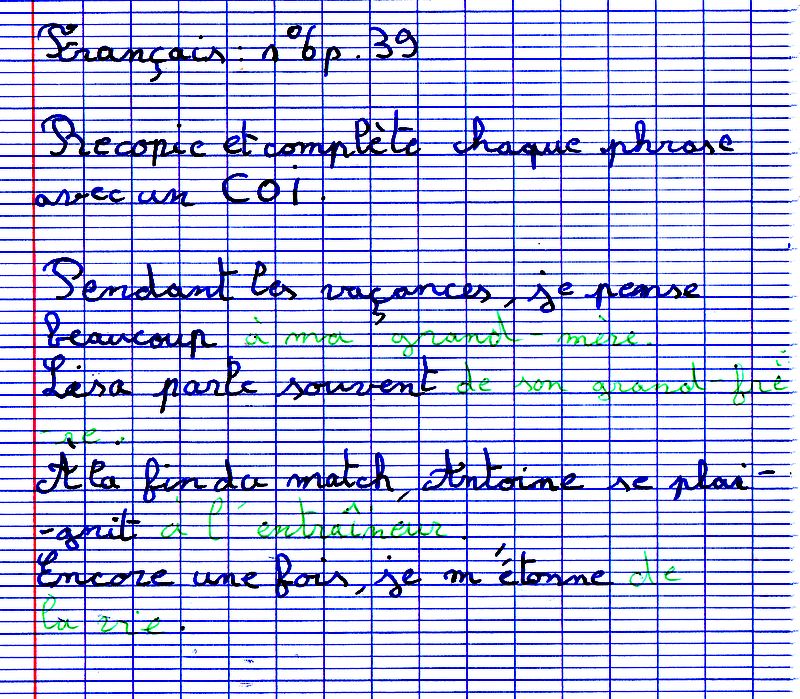 Français : n°6 p. 39
Recopie et complète chaque phrase
avec un COI.
Pendant les vaçances, je pense
beaucoup à ma grand-mère.
Lisa parle souvent de son grand-frè
-re.
À la fin du match, Antoine se plai-
-gnit à l'entraîneur.
Encore une fois, je m'étonne de
la vie.